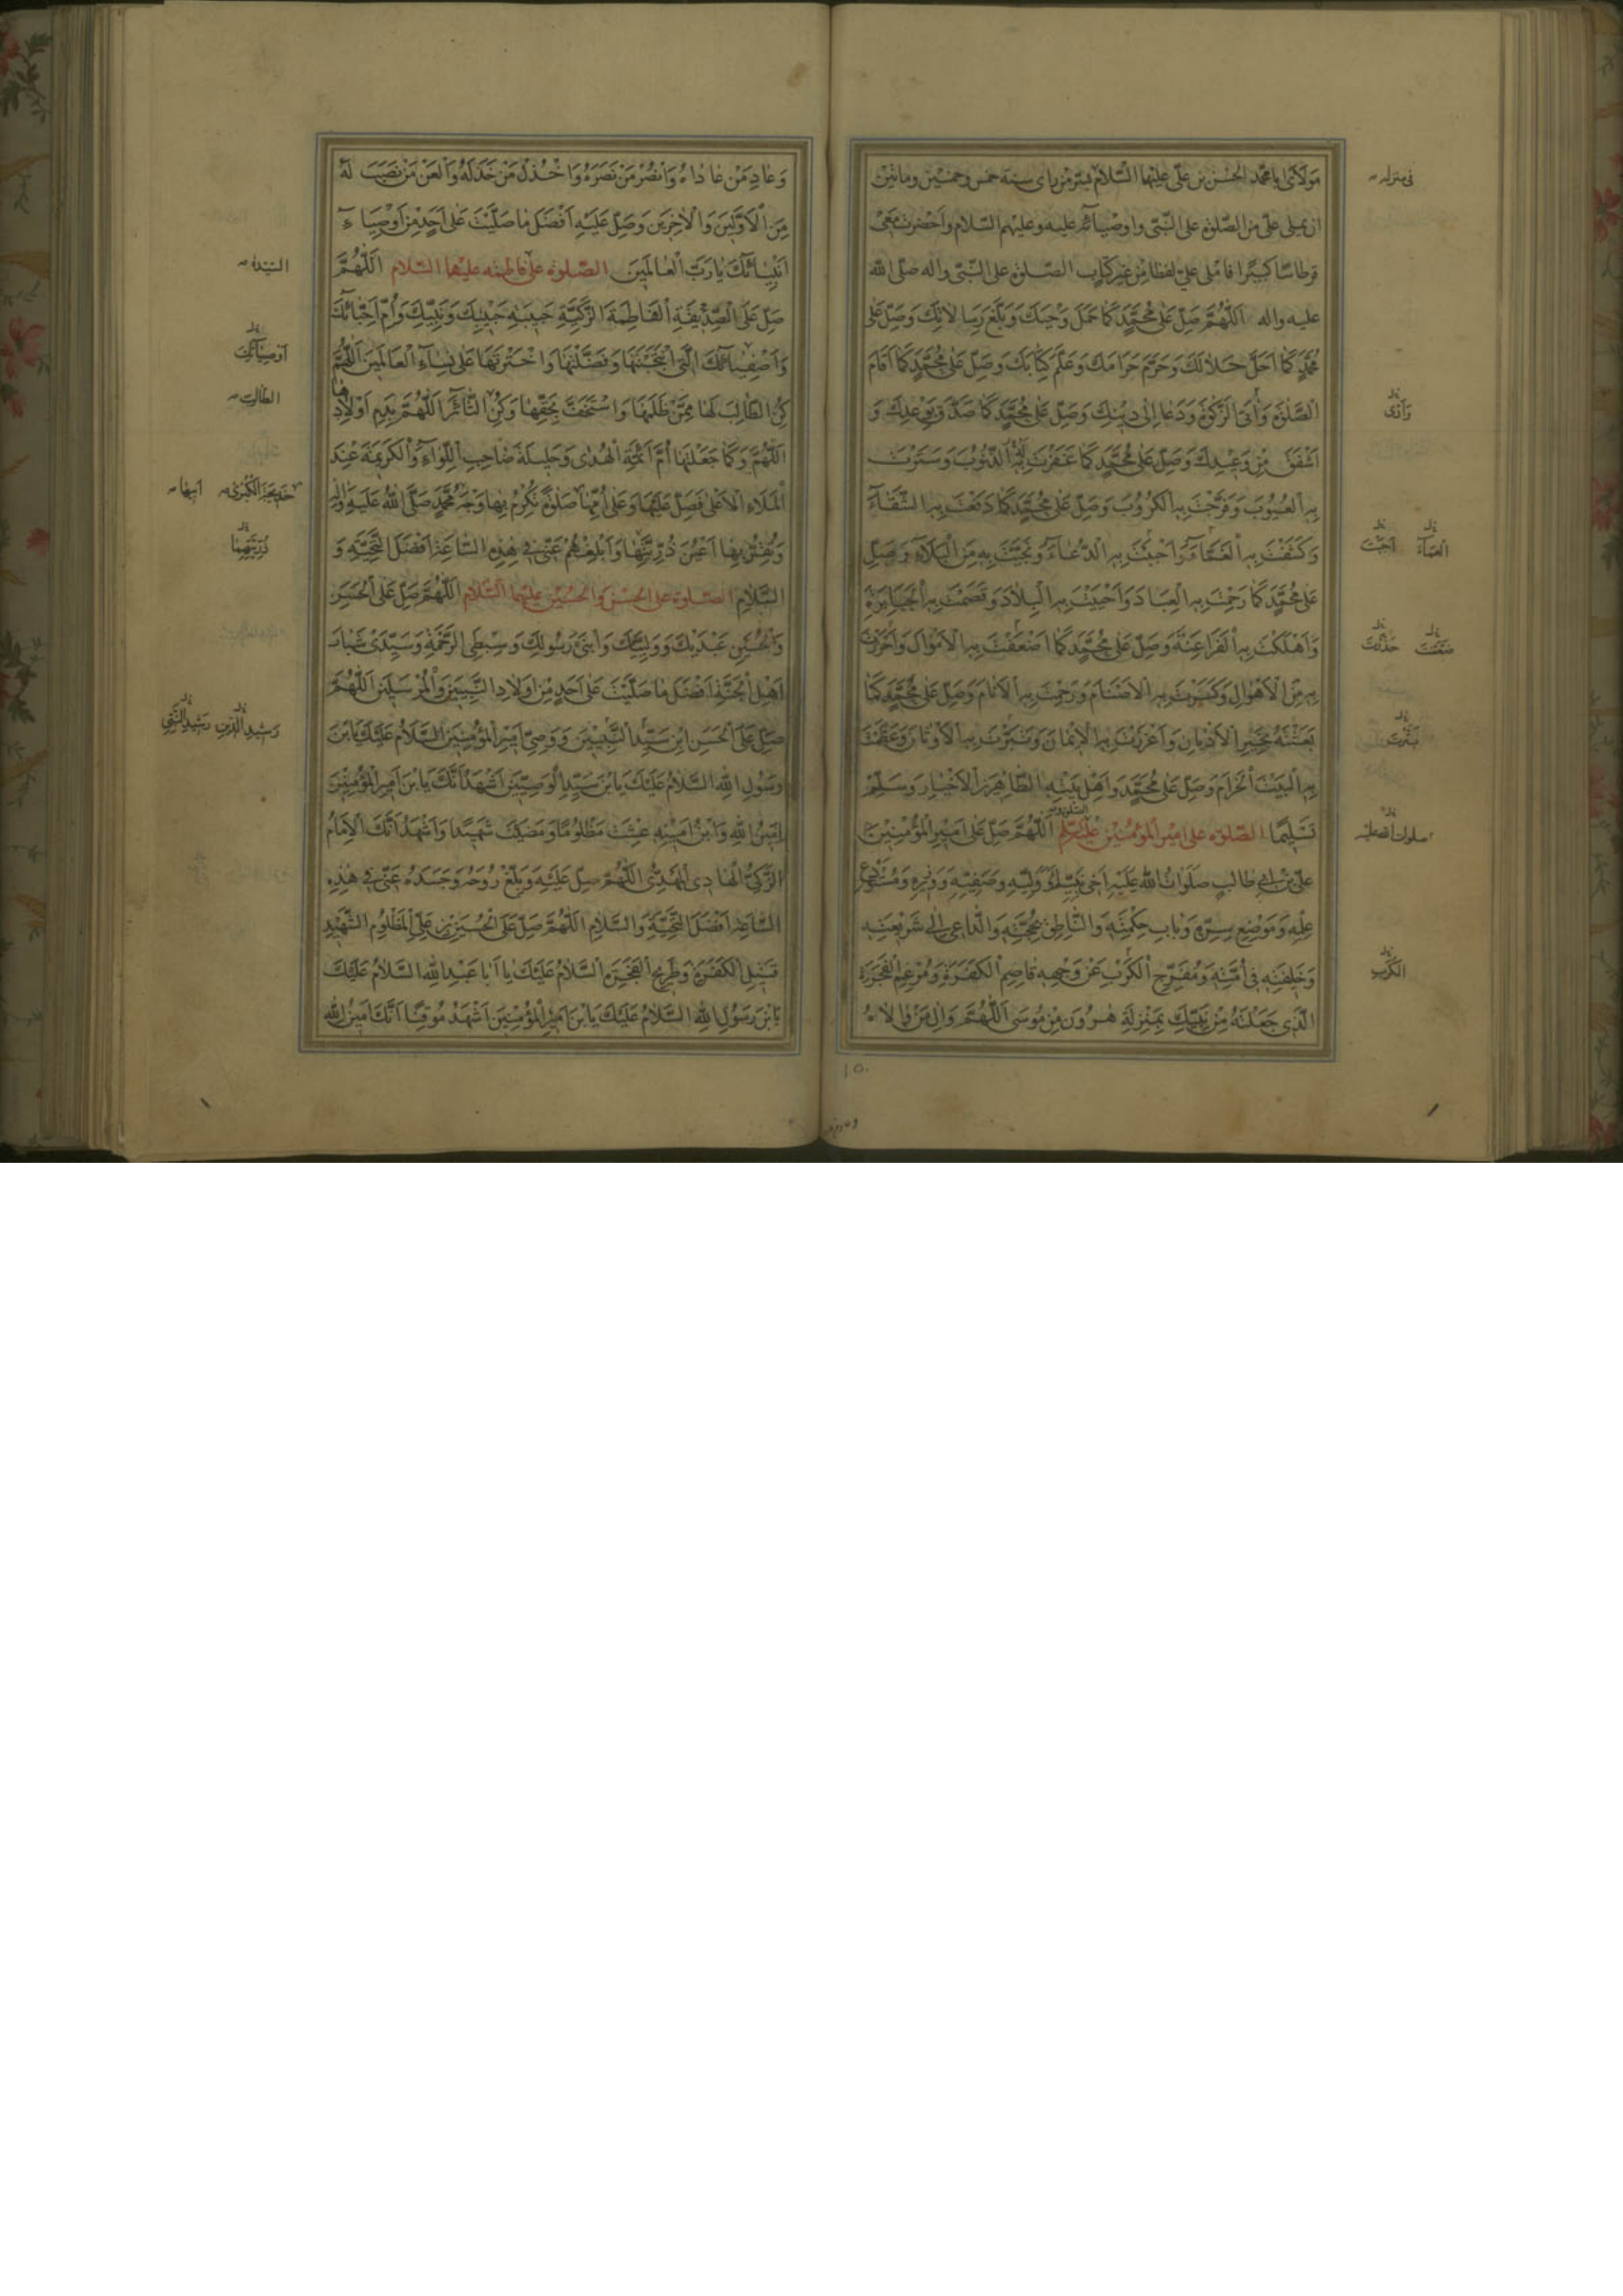 مَوْلَايَ اَبَا مُحَمَّدٍ الْحَسَنَ بْنَ عَلِيٍّ عَلَيْهِمَا السَّلَامُ بِسُرَّ مَنْ رَاى سنة خمس وخمسين ومائتين
ان يملى علىّ من الصّلوة على النّبىّ واوصيآئه عليه وعليهم السّلام واحضرت معى
قرطاسًا كبيرًا فاملى علىّ لفظا من غير كتاب الصّلوة على النّبىّ واله صلّى الله
عليه واله اَللّٰهُمَّ صَلِّ عَلٰى مُحَمَّدٍ كَمَا حَمَلَ وَحْيَكَ وَبَلَّغَ رِسَالَاتِكَ وَصَلِّ عَلٰى
مُحَمَّدٍ كَمَا اَحَلَّ حَلَالَكَ وَحَرَّمَ حَرَامَكَ وَعَلَّمَ كِتَابَكَ وَصَلِّ عَلٰى مُحَمَّدٍ كَمَا اَقَامَ
الصَّلٰوةَ وَاٰتَى الزَّكٰوةَ وَدَعَا اِلٰى دِينِكَ وَصَلِّ عَلٰى مُحَمَّدٍ كَمَا صَدَّقَ بِوَعْدِكَ وَ
اَشْفَقَ مِنْ وَعِيدِكَ وَصَلِّ عَلٰى مُحَمَّدٍ كَمَا غَفَرْتَ بِهِ الذُّنُوبَ وَسَتَرْتَ
بِهِ الْعُيُوبَ وَفَرَّجْتَ بِهِ الْكُرُوبَ وَصَلِّ عَلٰى مُحَمَّدٍ كَمَا دَفَعْتَ بِهِ الشَّقَآءَ
وَكَشَفْتَ بِهِ الْغَمَّآءَ وَاَجَبْتَ بِهِ الدُّعَآءَ وَنَجَّيْتَ بِهِ مِنَ الْبَلَآءِ وَصَلِّ
عَلٰى مُحَمَّدٍ كَمَا رَحِمْتَ بِهِ الْعِبَادَ وَاَحْيَيْتَ بِهِ الْبِلَادَ وَقَصَمْتَ بِهِ الْجَبَابِرَةَ
وَاَهْلَكْتَ بِهِ الْفَرَاعِنَةَ وَصَلِّ عَلٰى مُحَمَّدٍ كَمَا اَضْعَفْتَ بِهِ الْاَمْوَالَ وَاَحْرَزْتَ
بِهِ مِنَ الْاَهْوَالِ وَكَسَرْتَ بِهِ الْاَصْنَامَ وَرَحِمْتَ بِهِ الْاَنَامَ وَصَلِّ عَلٰى مُحَمَّدٍ كَمَا
بَعَثْتَهُ بِخَيْرِ الْاَدْيَانِ وَاَعْزَزْتَ بِهِ الْاِيمَانَ وَتَبَّرْتَ بِهِ الْاَوْثَانَ وَعَظَّمْتَ
بِهِ الْبَيْتَ الْحَرَامَ وَصَلِّ عَلٰى مُحَمَّدٍ وَاَهْلِ بَيْتِهِ الطَّاهِرِينَ الْاَخْيَارِ وَسَلِّمْ
تَسْلِيمًا الصّلوة على امير المؤمنين عليه السّلم اَللّٰهُمَّ صَلِّ عَلٰى اَمِيرِ الْمُؤْمِنِينَ
عَلِيِّ بْنِ اَبِي طَالِبٍ صَلَوَاتُ اللّٰهِ عَلَيْهِ اَخِي نَبِيِّكَ وَوَلِيِّهِ وَصَفِيِّهِ وَوَزِيرِهِ وَمُسْتَوْدَعِ
عِلْمِهِ وَمَوْضِعِ سِرِّهِ وَبَابِ حِكْمَتِهِ وَالنَّاطِقِ بِحُجَّتِهِ وَالدَّاعِي اِلٰى شَرِيعَتِهِ
وَخَلِيفَتِهِ فِي اُمَّتِهِ وَمُفَرِّجِ الْكَرْبِ عَنْ وَجْهِهِ قَاصِمِ الْكَفَرَةِ وَمُرْغِمِ الْفَجَرَةِ
الَّذِي جَعَلْتَهُ مِنْ نَبِيِّكَ بِمَنْزِلَةِ هٰرُونَ مِنْ مُوسٰى اَللّٰهُمَّ وَالِ مَنْ وَالَاهُ
فى منزله
وَاٰتَى
الْغَمَّآءَ اَجَبْتَ
ضَعَّفْتَ
تَبَّرْتَ
صلوات الله عليه
الْكَرْبِ
١٥٠
وَعَادِ مَنْ عَادَاهُ وَانْصُرْ مَنْ نَصَرَهُ وَاخْذُلْ مَنْ خَذَلَهُ وَالْعَنْ مَنْ نَصَبَ لَهُ
مِنَ الْاَوَّلِينَ وَالْاٰخِرِينَ وَصَلِّ عَلَيْهِ اَفْضَلَ مَا صَلَّيْتَ عَلٰى اَحَدٍ مِنْ اَوْصِيَآءِ
اَنْبِيَآئِكَ يَا رَبَّ الْعَالَمِينَ الصّلوة على فاطمة عليها السّلام اَللّٰهُمَّ
صَلِّ عَلَى الصِّدِّيقَةِ الْفَاطِمَةِ الزَّكِيَّةِ حَبِيبَةِ حَبِيبِكَ وَنَبِيِّكَ وَاُمِّ اَحِبَّآئِكَ
وَاَصْفِيَآئِكَ الَّتِي انْتَجَبْتَهَا وَفَضَّلْتَهَا وَاخْتَرْتَهَا عَلٰى نِسَآءِ الْعَالَمِينَ اَللّٰهُمَّ
كُنِ الطَّالِبَ لَهَا مِمَّنْ ظَلَمَهَا وَاسْتَخَفَّ بِحَقِّهَا وَكُنِ الثَّائِرَ اَللّٰهُمَّ بِدَمِ اَوْلَادِهَا
اَللّٰهُمَّ وَكَمَا جَعَلْتَهَا اُمَّ اَئِمَّةِ الْهُدٰى وَحَلِيلَةَ صَاحِبِ اللِّوَآءِ وَالْكَرِيمَةَ عِنْدَ
الْمَلَاءِ الْاَعْلٰى فَصَلِّ عَلَيْهَا وَعَلٰى اُمِّهَا صَلٰوةً تُكْرِمُ بِهَا وَجْهَ مُحَمَّدٍ صَلَّى اللّٰهُ عَلَيْهِ وَاٰلِهِ
وَتُقِرُّ بِهَا اَعْيُنَ ذُرِّيَّتِهَا وَاَبْلِغْهُمْ عَنِّي فِي هٰذِهِ السَّاعَةِ اَفْضَلَ التَّحِيَّةِ وَ
السَّلَامِ الصّلوة على الحسن والحسين عليهما السّلام اَللّٰهُمَّ صَلِّ عَلَى الْحَسَنِ
وَالْحُسَيْنِ عَبْدَيْكَ وَوَلِيَّيْكَ وَابْنَيْ رَسُولِكَ وَسِبْطَيِ الرَّحْمَةِ وَسَيِّدَيْ شَبَابِ
اَهْلِ الْجَنَّةِ اَفْضَلَ مَا صَلَّيْتَ عَلٰى اَحَدٍ مِنْ اَوْلَادِ النَّبِيِّينَ وَالْمُرْسَلِينَ اَللّٰهُمَّ
صَلِّ عَلَى الْحَسَنِ ابْنِ سَيِّدِ النَّبِيِّينَ وَوَصِيِّ اَمِيرِ الْمُؤْمِنِينَ السَّلَامُ عَلَيْكَ يَا بْنَ
رَسُولِ اللّٰهِ السَّلَامُ عَلَيْكَ يَا بْنَ سَيِّدِ الْوَصِيِّينَ اَشْهَدُ اَنَّكَ يَا بْنَ اَمِيرِ الْمُؤْمِنِينَ
اَمِينُ اللّٰهِ وَابْنُ اَمِينِهِ عِشْتَ مَظْلُومًا وَمَضَيْتَ شَهِيدًا وَاَشْهَدُ اَنَّكَ الْاِمَامُ
الزَّكِيُّ الْهَادِي الْمَهْدِيُّ اَللّٰهُمَّ صَلِّ عَلَيْهِ وَبَلِّغْ رُوحَهُ وَجَسَدَهُ عَنِّي فِي هٰذِهِ
السَّاعَةِ اَفْضَلَ التَّحِيَّةِ وَالسَّلَامِ اَللّٰهُمَّ صَلِّ عَلَى الْحُسَيْنِ بْنِ عَلِيٍّ الْمَظْلُومِ الشَّهِيدِ
قَتِيلِ الْكَفَرَةِ وَطَرِيحِ الْفَجَرَةِ السَّلَامُ عَلَيْكَ يَا اَبَا عَبْدِ اللّٰهِ السَّلَامُ عَلَيْكَ
يَا بْنَ رَسُولِ اللّٰهِ السَّلَامُ عَلَيْكَ يَا بْنَ اَمِيرِ الْمُؤْمِنِينَ اَشْهَدُ مُوقِنًا اَنَّكَ اَمِينُ اللّٰهِ
السّيّدة
اَوْصِيَآئِكَ
الطّالب
خَدِيجَةَ الْكُبْرٰى ابيها
ذُرِّيَّتِهِمَا